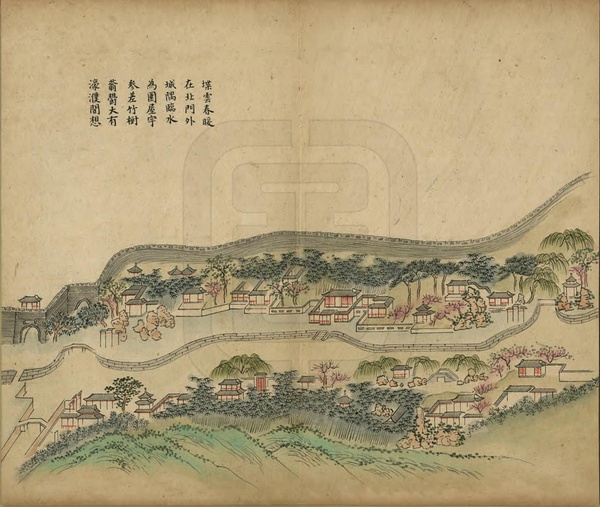 堞雲春暖
在北門外
城隅臨水
為園屋宇
參差竹樹
蓊鬱大有
濠濮間想